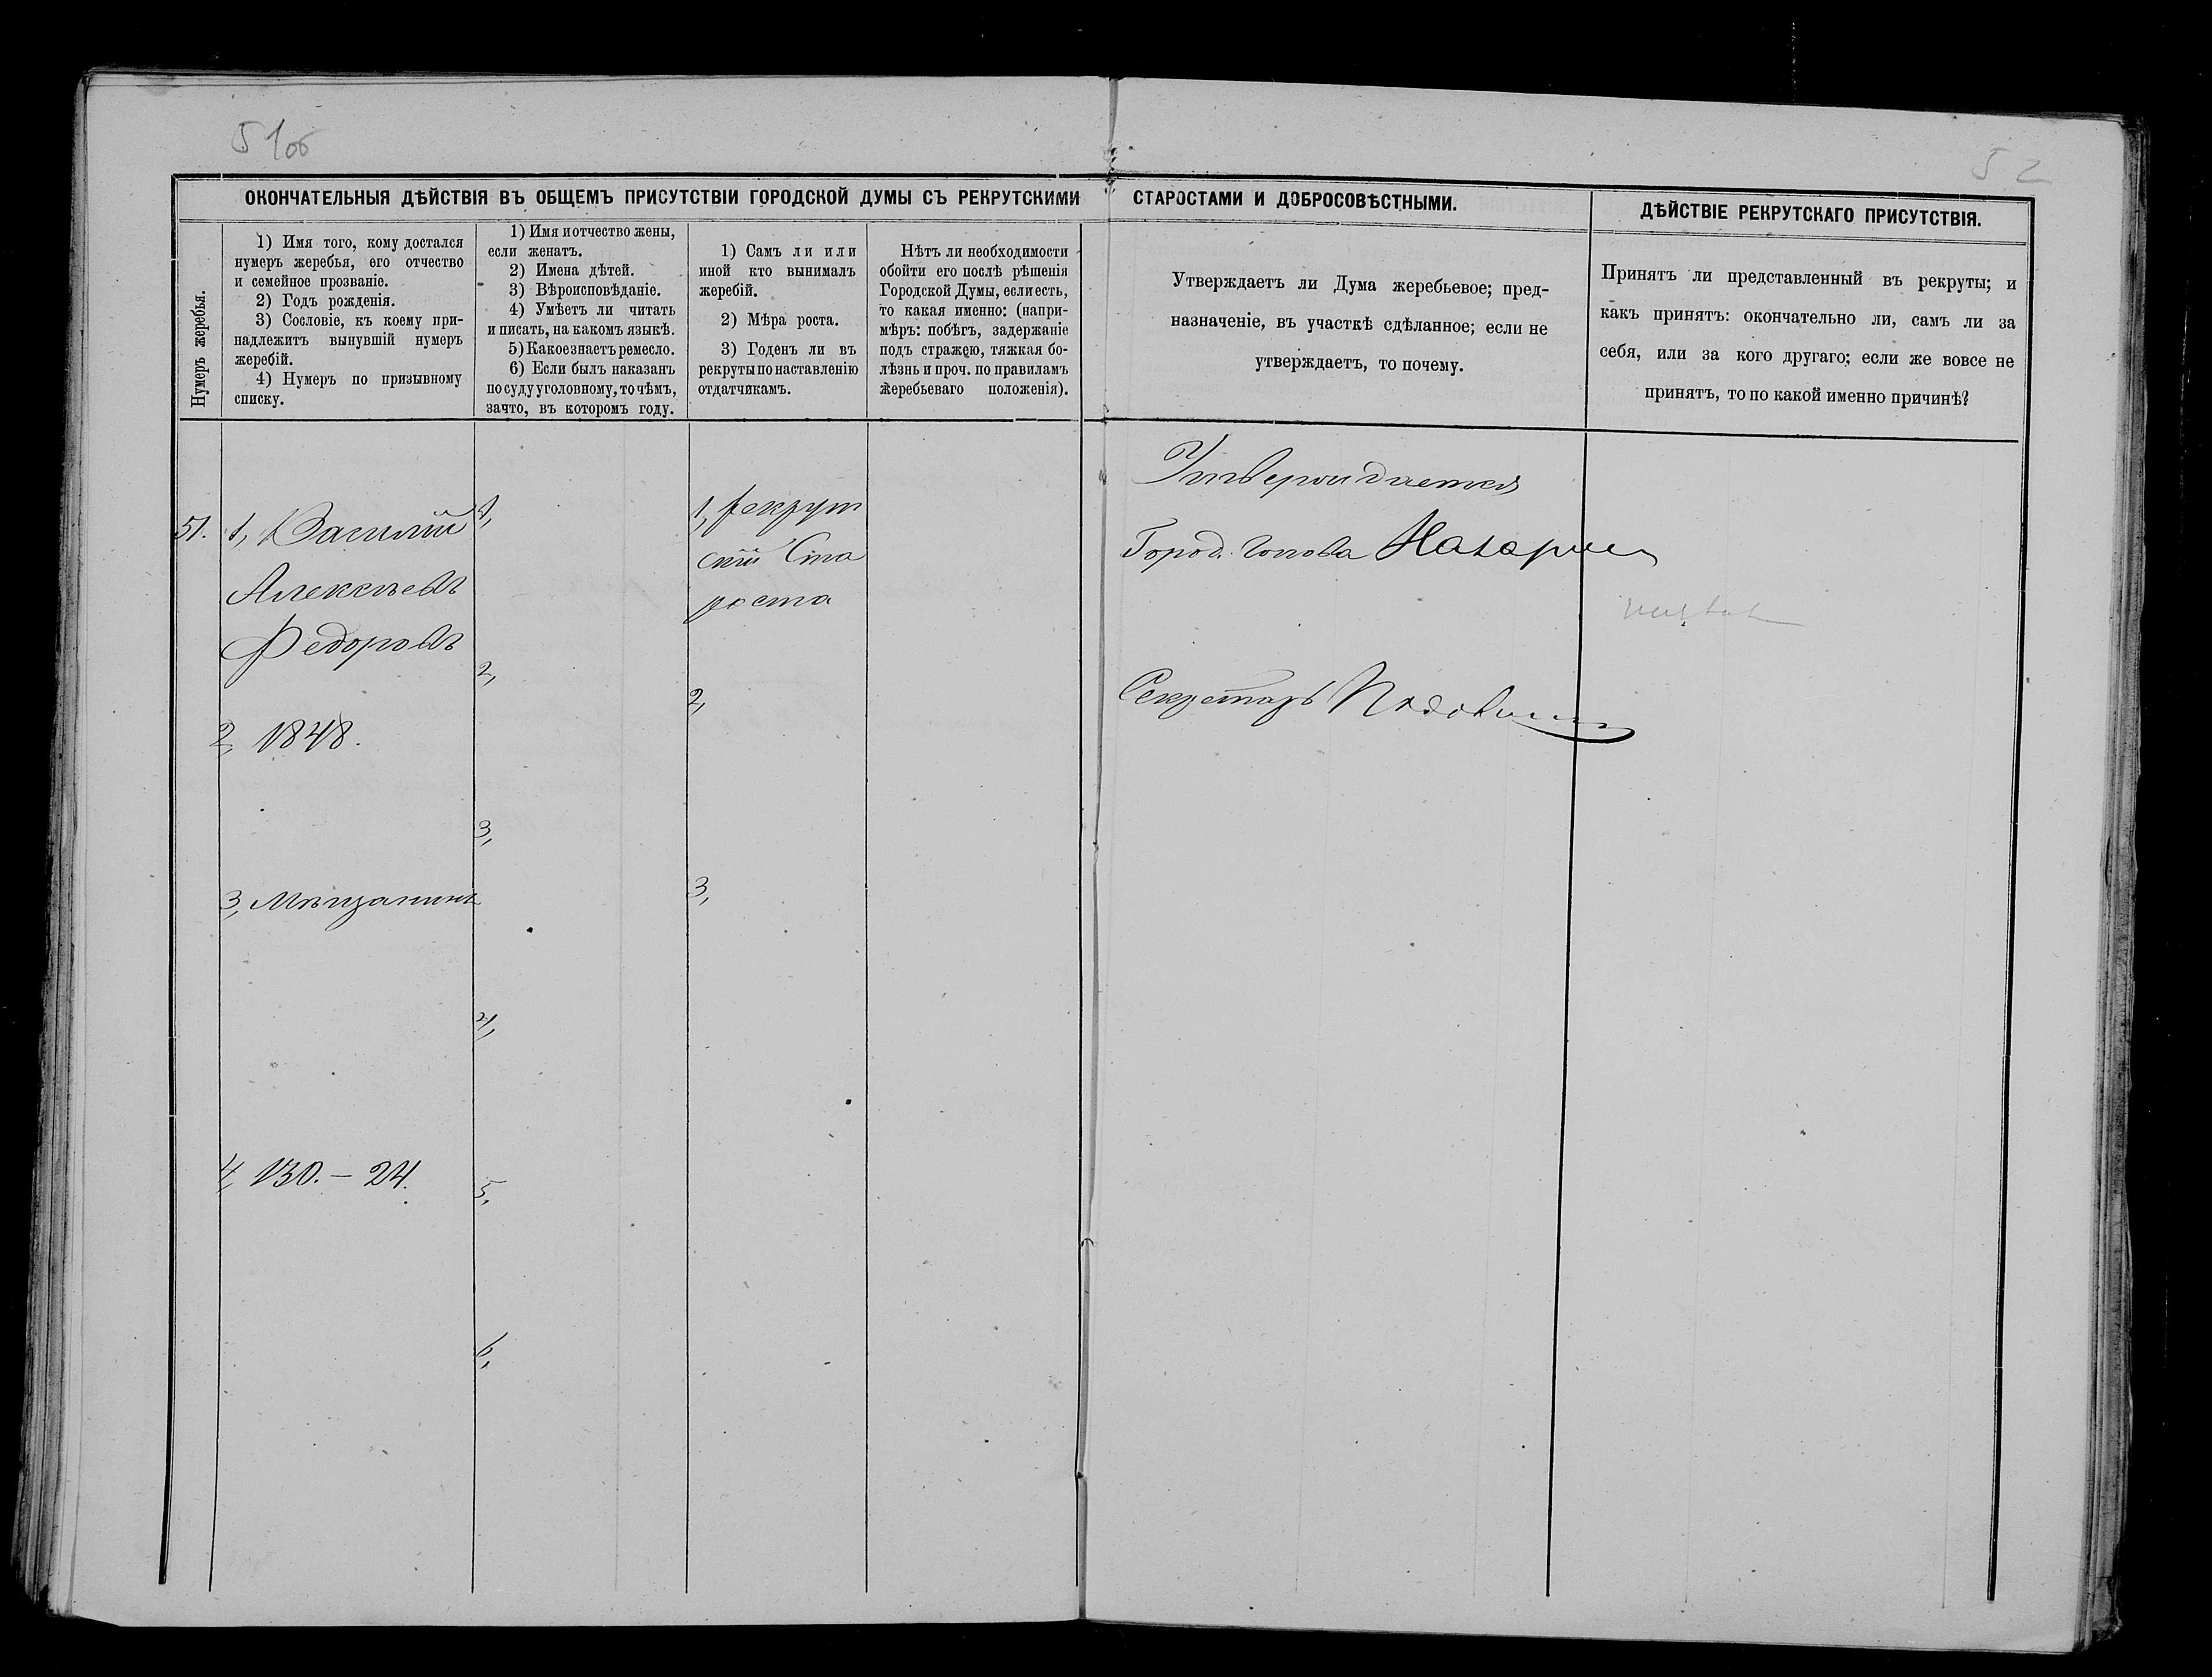 51об
52
ОКОНЧАТЕЛЬНЫЯ ДѢЙСТВІЯ ВЪ ОБЩЕМЪ ПРИСУТСТВІИ ГОРОДСКОЙ ДУМЫ СЪ РЕКРУТСКИМИ СТАРОСТАМИ И ДОБРОСОВѢСТНЫМИ.
ДѢЙСТВІЕ РЕКРУТСКАГО ПРИСУТСТВІЯ.
Нумеръ жеребья.
1) Имя того, кому достался
нумеръ жеребья, его отчество
и семейное прозваніе.
2) Годъ рожденія.
3) Сословіе, къ коему при-
надлежитъ вынувшій нумеръ
жеребій.
4) Нумеръ по призывному
списку.
1) Имя и отчество жены,
если женатъ.
2) Имена дѣтей.
3) Вѣроисповѣданіе.
4) Умѣетъ ли читать
и писать, на какомъ языкѣ.
5) Какое знаетъ ремесло.
6) Если былъ наказанъ
по суду уголовному, то чѣмъ,
за что, въ которомъ году.
1) Самъ ли или
иной кто вынималъ
жеребій.
2) Мѣра роста.
3) Годенъ ли въ
рекруты по наставленію
отдатчикамъ.
Нѣтъ ли необходимости
обойти его послѣ рѣшенія
Городской Думы, если есть,
то какая именно: (напри-
мѣръ: побѣгъ, задержаніе
подъ стражею, тяжкая бо-
лѣзнь и проч. по правиламъ
Жеребьеваго положенія).
Утверждаетъ ли Дума жеребьевое; пред-
назначеніе, въ участкѣ сдѣланное; если не
утверждаетъ, то почему.
Принятъ ли представленный въ рекруты; и
какъ принятъ: окончательно ли, самъ ли за
себя, или за кого другаго; если же вовсе не
принятъ, то по какой именно причинѣ?
51.
1, Василій
Алексѣевъ
Федоровъ
2, 1848.
3, Мѣщанинъ
4, 130. — 24.
1,
2,
3,
4,
5,
6,
1, рекрут
скій Ста
роста
2,
3,
Утверждается
Город. Голова
Секретарь